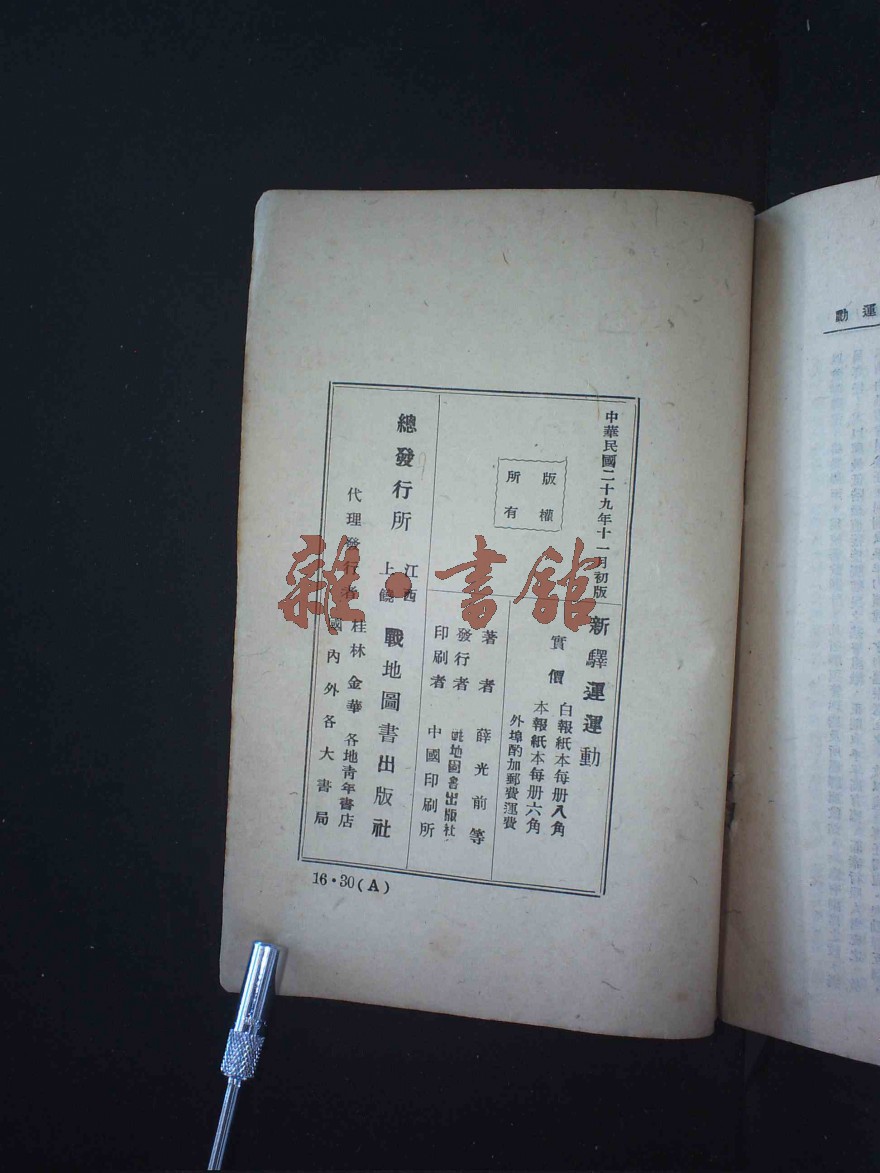 中華民國二十九年十一月初版
版權
所有
新驛運運動
實價
白報紙本每册八角
本報紙本每册六角
外埠酌加郵費運費
著者 薛光前等
發行者 戰地圖書出版社
印刷者 中國印刷所
總發行所 江西上饒 戰地圖書出版社
代理發行者 桂林 金華 各地青年書店
國內外各大書局
16·30(A)
運動
雜·書館